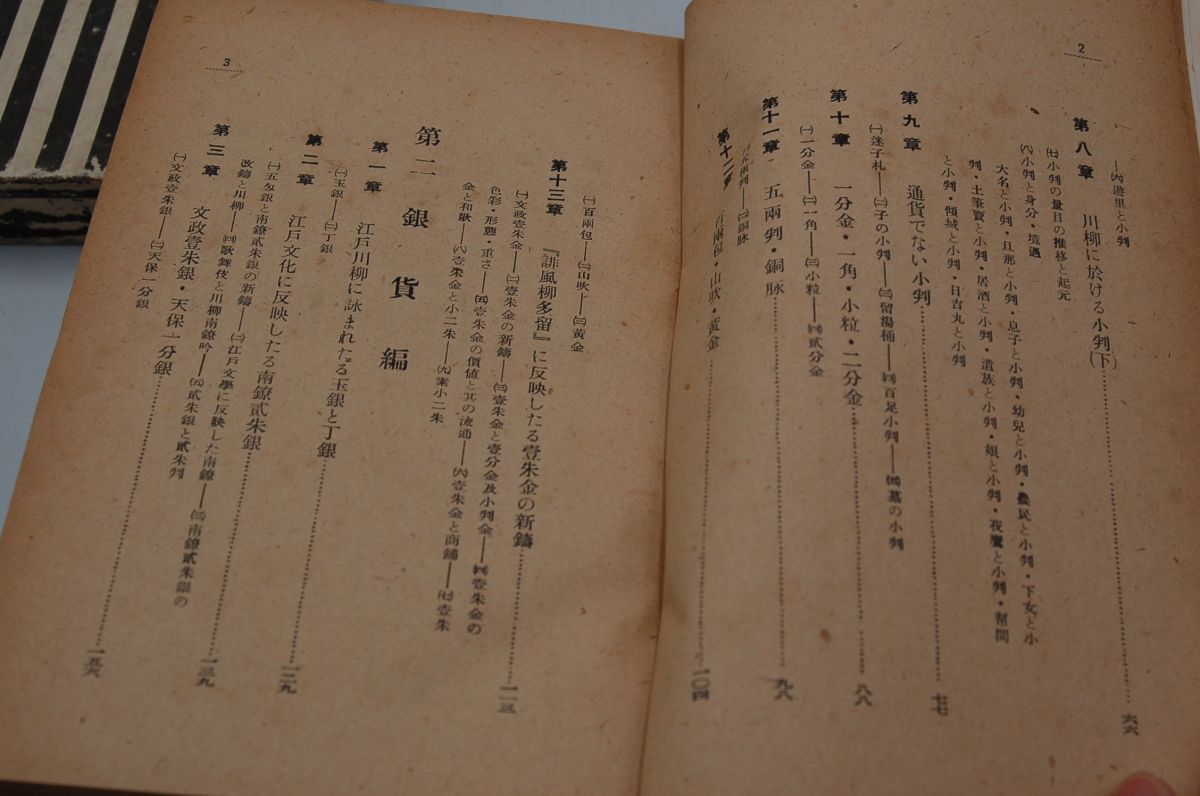 2
——㈥遊里と小判
第八章 川柳に於ける小判(下)……六六
㈦小判の量目の推移と起元
㈧小判と身分・境遇
大名と小判・旦那と小判・息子と小判・幼兒と小判・農民と小判・下女と小
判・土筆賣と小判・居酒と小判・遺族と小判・娘と小判・夜鷹と小判・幇間
と小判・傾城と小判・日吉丸と小判
第九章 通貨でない小判……七七
㈠迷子札——㈡子の小判——㈢留湯桶——㈣百足小判——㈤墓の小判
第十章 一分金・一角・小粒・二分金……八八
㈠一分金——㈡一角——㈢小粒——㈣貳分金
第十一章 五兩判・銅脉……九八
㈠五兩判——㈡銅脉
第十二章 百兩包・山吹・黃金……一〇四
3
㈠百兩包——㈡山吹——㈢黃金
第十三章 『誹風柳多留』に反映したる壹朱金の新鑄……一一三
㈠文政壹朱金——㈡壹朱金の新鑄——㈢壹朱金と壹分金及小判金——㈣壹朱金の
色彩・形態・重さ——㈤壹朱金の價値と其の流通——㈥壹朱金と商舗——㈦壹朱
金と和歌——㈧壹朱金と小二朱——㈨素小二朱
第二 銀貨編
第一章 江戸川柳に詠まれたる玉銀と丁銀……一二九
㈠玉銀——㈡丁銀
第二章 江戸文化に反映したる南鐐貳朱銀……一三九
㈠五匁銀と南鐐貳朱銀の新鑄——㈡江戸文學に反映した南鐐——㈢南鐐貳朱銀の
改鑄と川柳——㈣歌舞伎と川柳南鐐吟——㈤貳朱銀と貳朱判
第三章 文政壹朱銀・天保一分銀……一五六
㈠文政壹朱銀——㈡天保一分銀